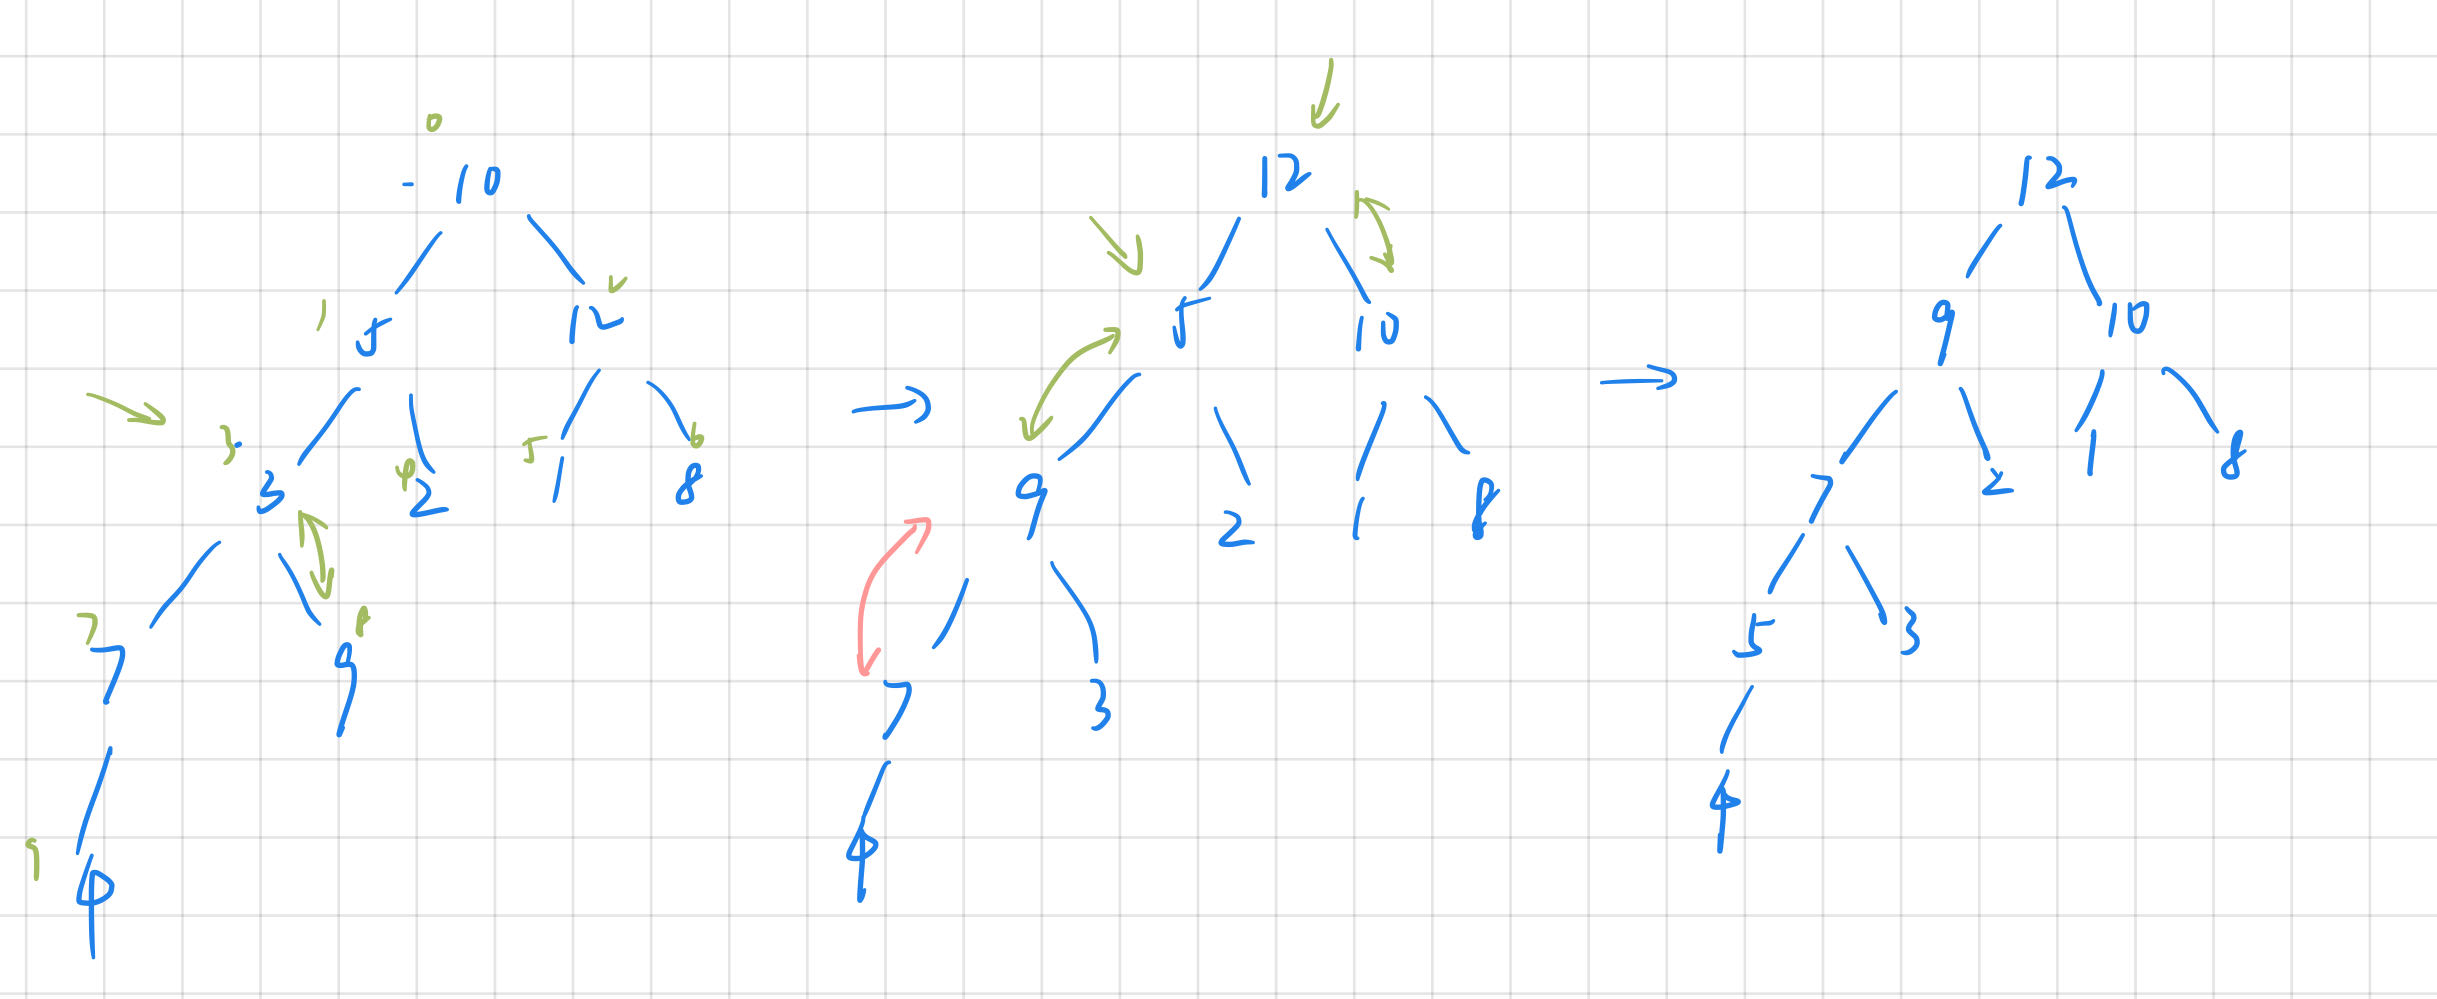 0
10
1
2
5
12
3
4
5
6
3
2
1
8
7
8
7
9
9
4
12
5
10
9
2
1
8
7
3
4
12
9
10
7
2
1
8
5
3
4